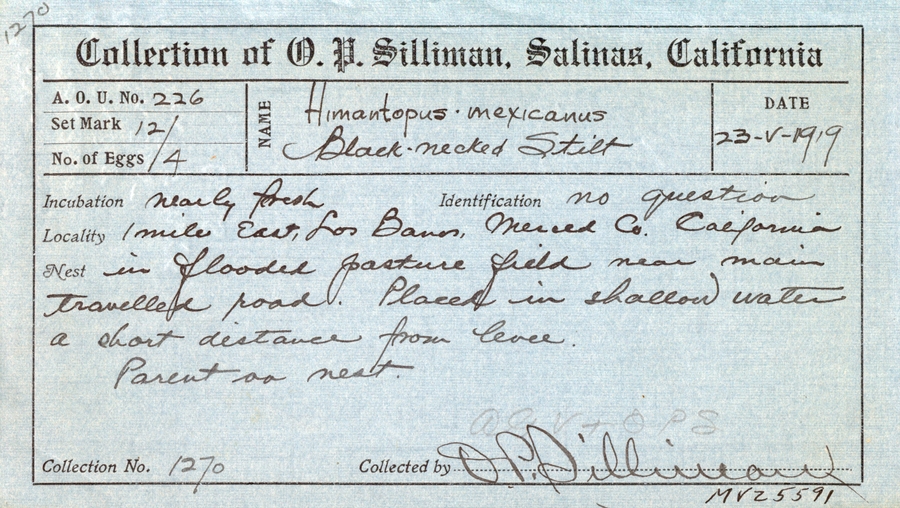 1270
Collection of O. P. Silliman, Salinas, California
A. O. U. No. 226
Set Mark 12/
No. of Eggs /4
NAME
Himantopus mexicanus
Black-necked Stilt
DATE
23-V-1919
Incubation nearly fresh Identification no question
Locality 1 mile East, Los Banos, Merced Co. California
Nest in flooded pasture field near main
travelled road. Placed in shallow water
a short distance from levee.
Parent on nest.
Collection No. 1270 Collected by O.P. Silliman
MVZ 5591